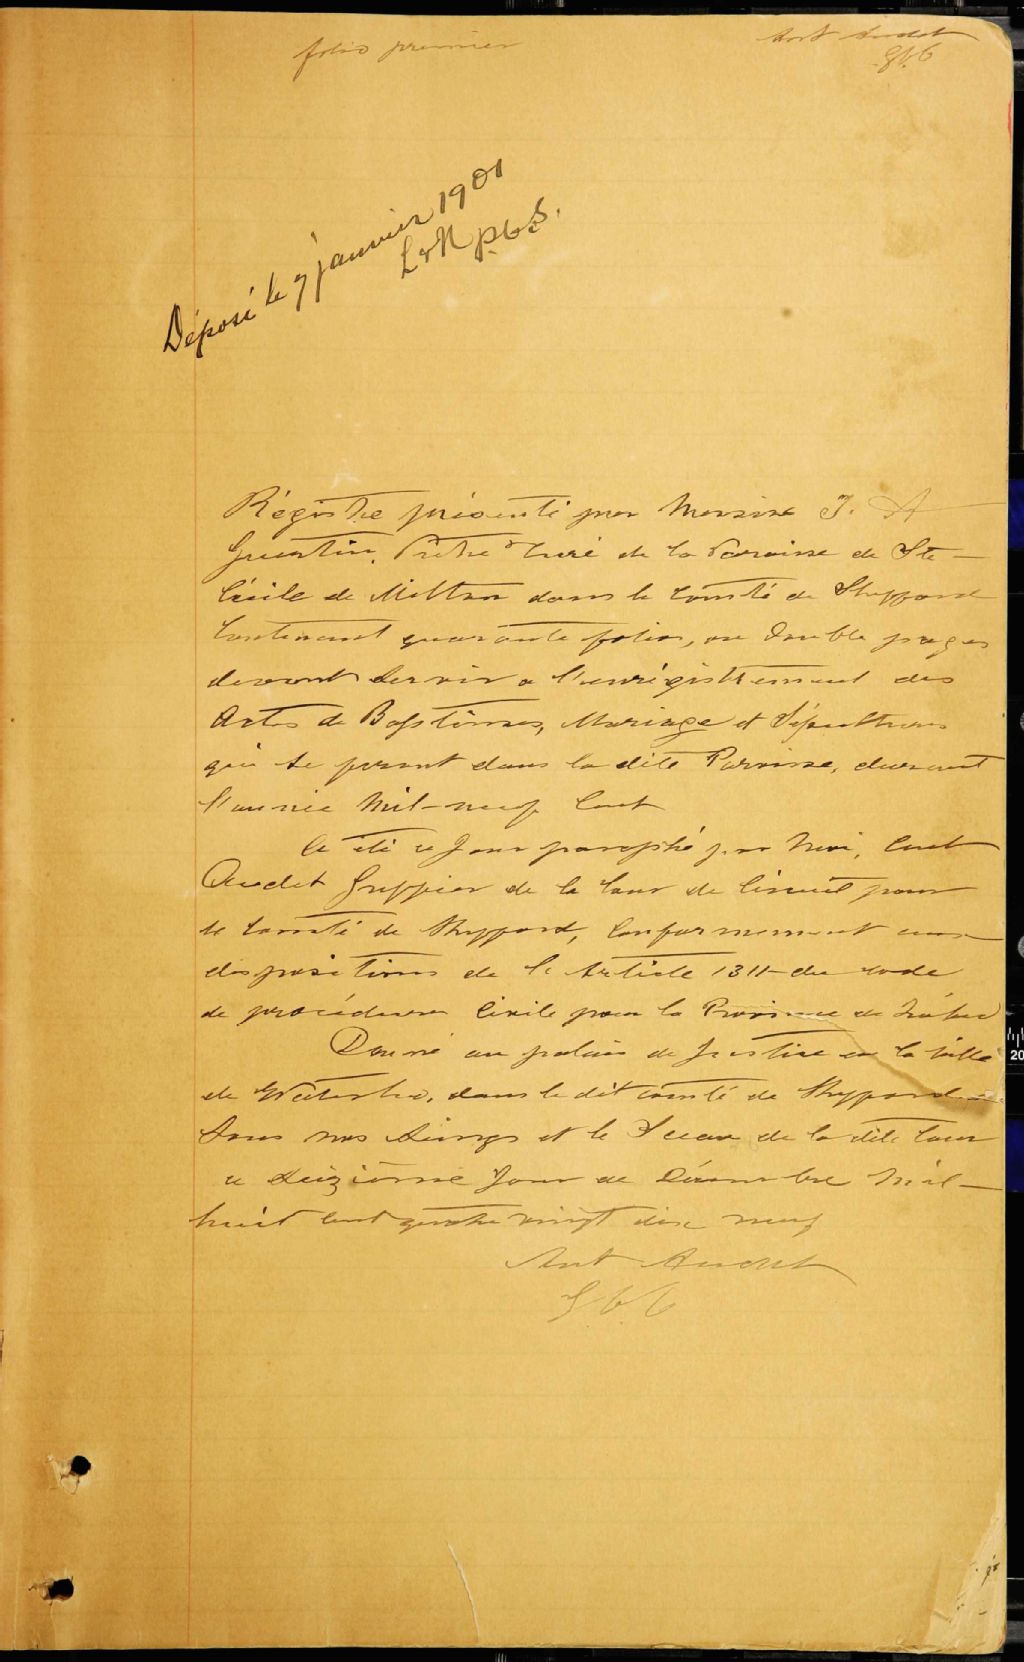 folio premier
Ant Audet
G.C.C
Déposé le 7 janvier 1901
L & N p.c.s.
Régistre présenté par Messire J. A
Prêtre Curé de la Paroisse de Ste
Cécile de Milton dans le comté de Shefford
Contenant quarante folios, ou double pages
devant servir a l'enrégistrement des
Actes de Baptêmes, Mariage et Sépultures
qui se feront dans la dite Paroisse, durant
l'année Mil-neuf Cent
a été ce Jour paraphé par Moi, Ant
Audet Greffier de la Cour de Circuit pour
le Comté de Shefford, Conformement aux
dispositions de l'Article 1311 du code
de procédure Civile pour la Province de Québec
Donné au palais de Justice en la ville
de Waterloo, dans le dit comté de Shefford
Sous nos Seings et le Sceau de la dite Cour
ce Seizième Jour de Décembre Mil-
huit Cent quatre vingt dix neuf
Ant Audet
G.C.C